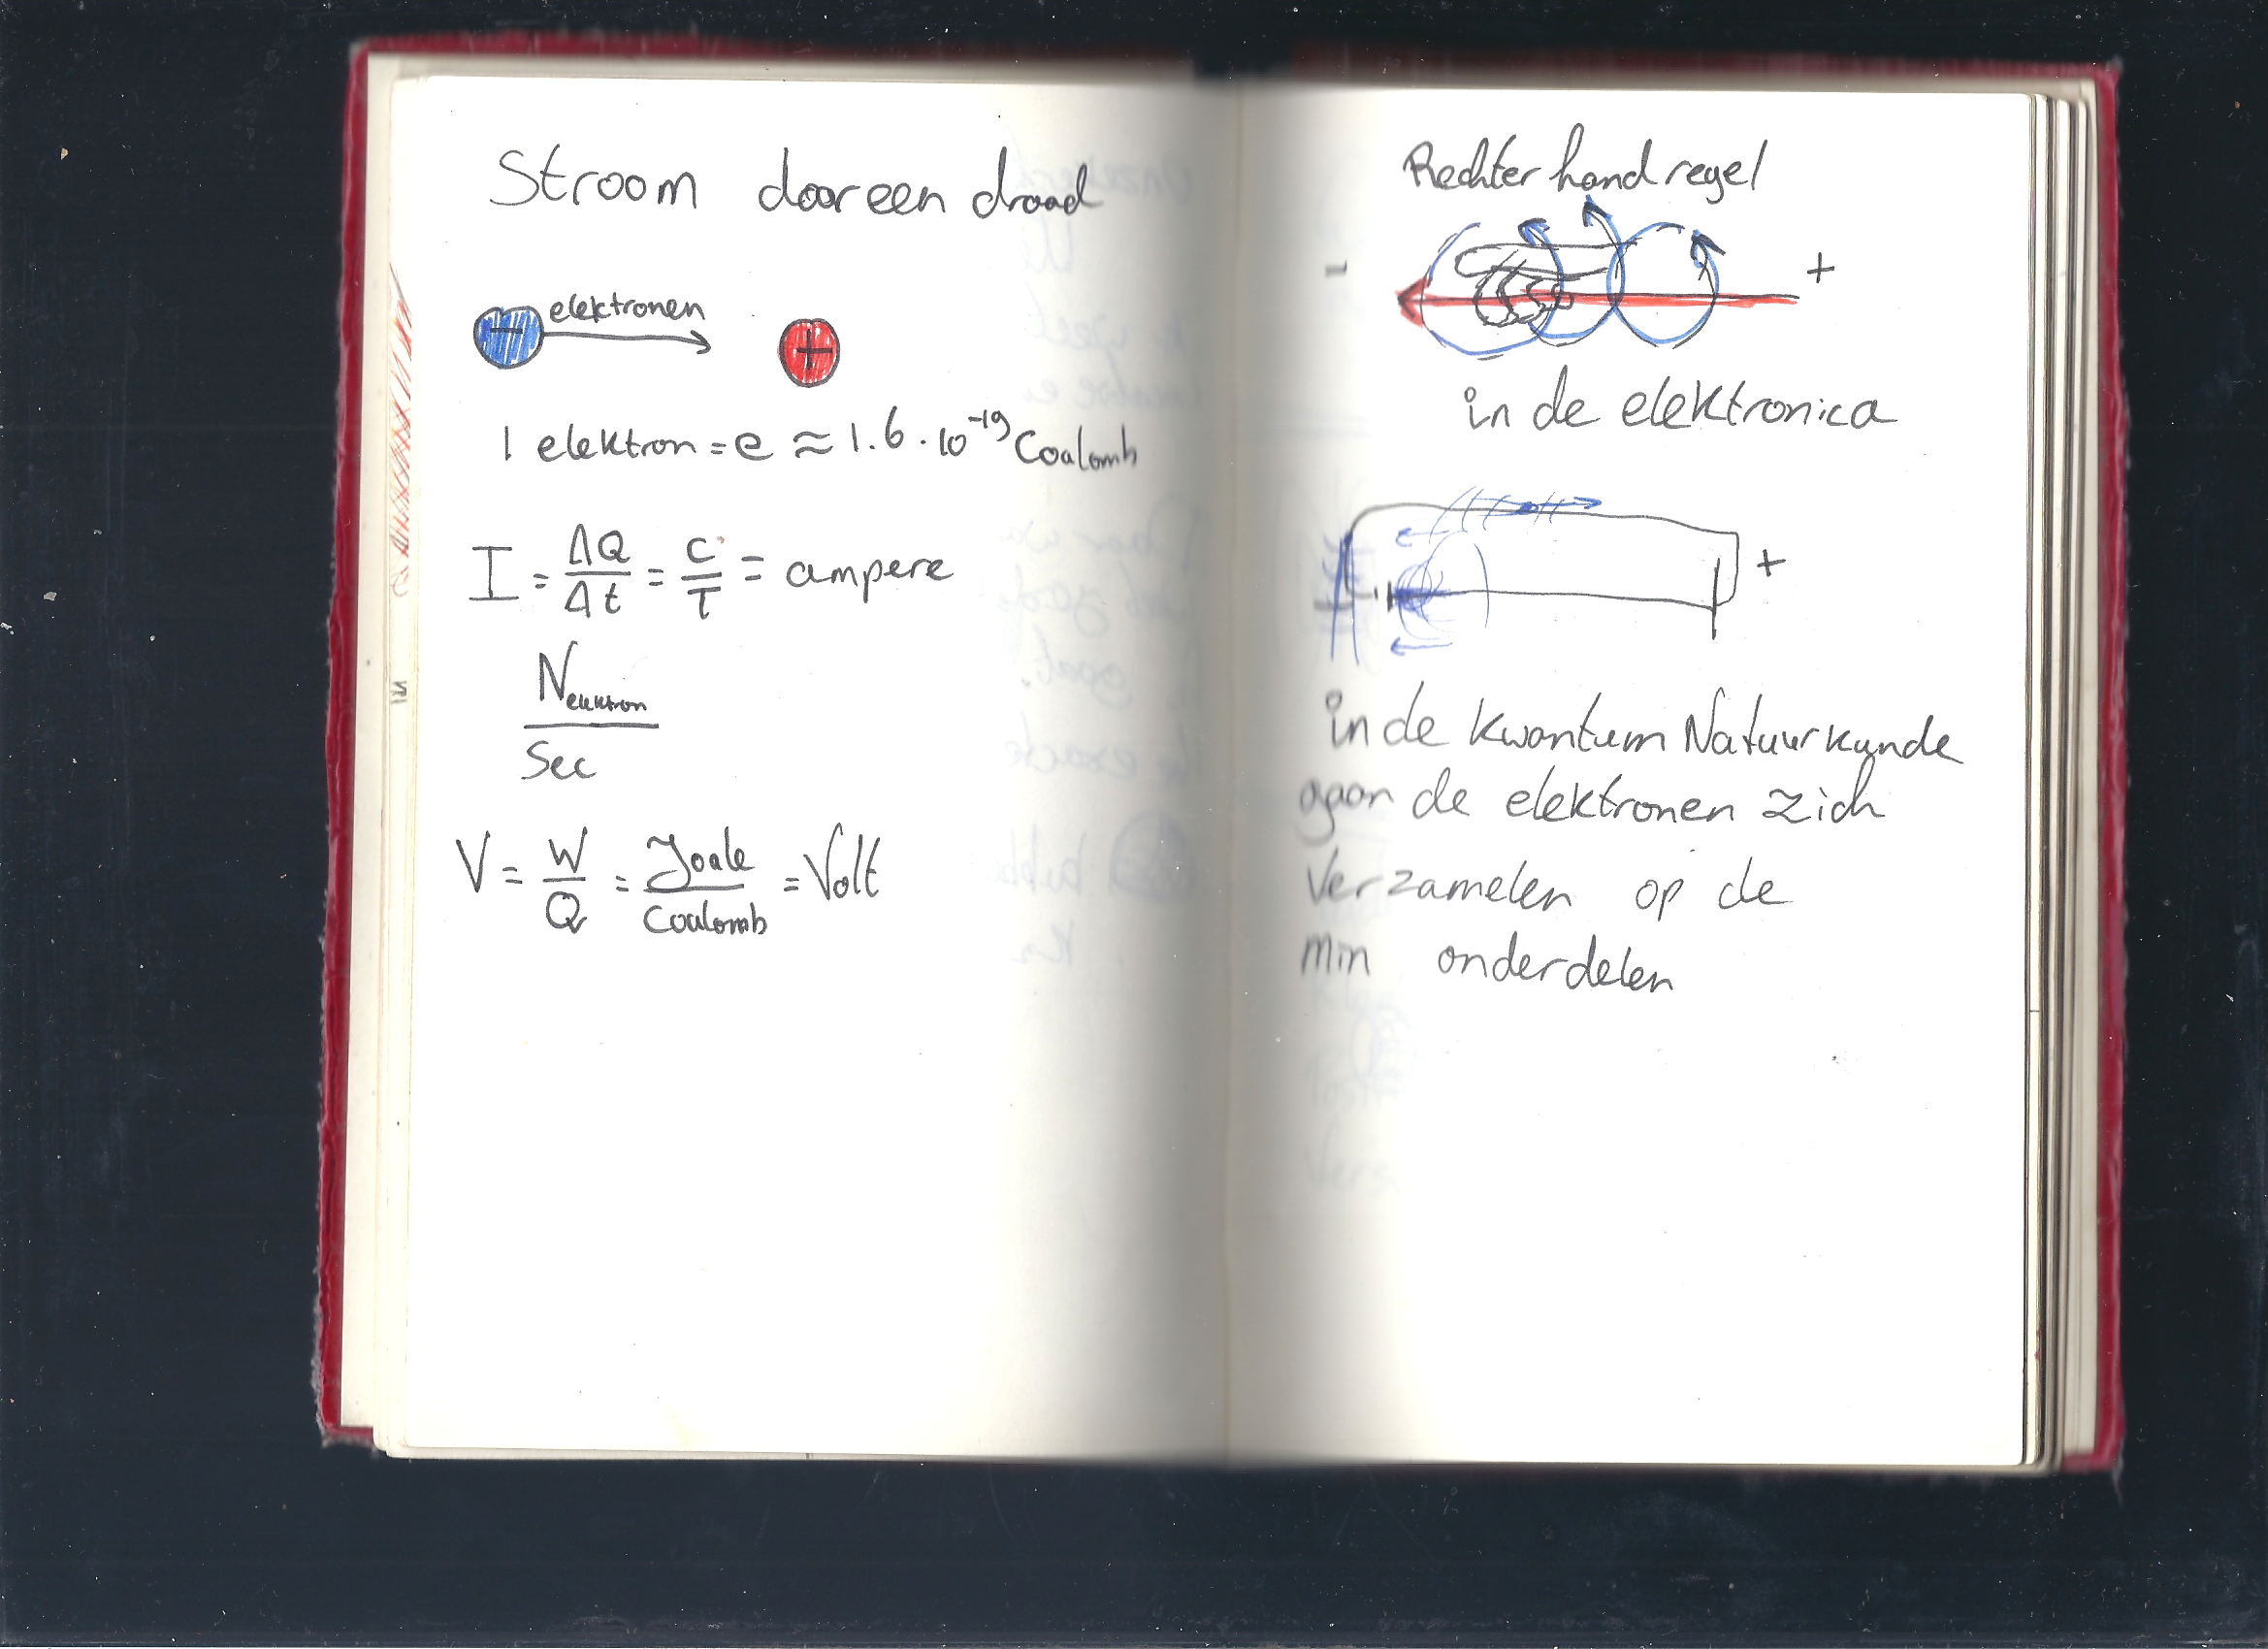 Stroom door een draad
elektronen
-
+
1 elektron = e ≈ 1.6 · 10⁻¹⁹ Coalomb
I = ΔQ/Δt = C/T = ampere
Nelektron/Sec
V = W/Q = Joale/Coalomb = Volt
Rechter hand regel
- +
in de elektronica
+
in de kwantum Natuurkunde
gaan de elektronen zich
verzamelen op de
min onderdelen